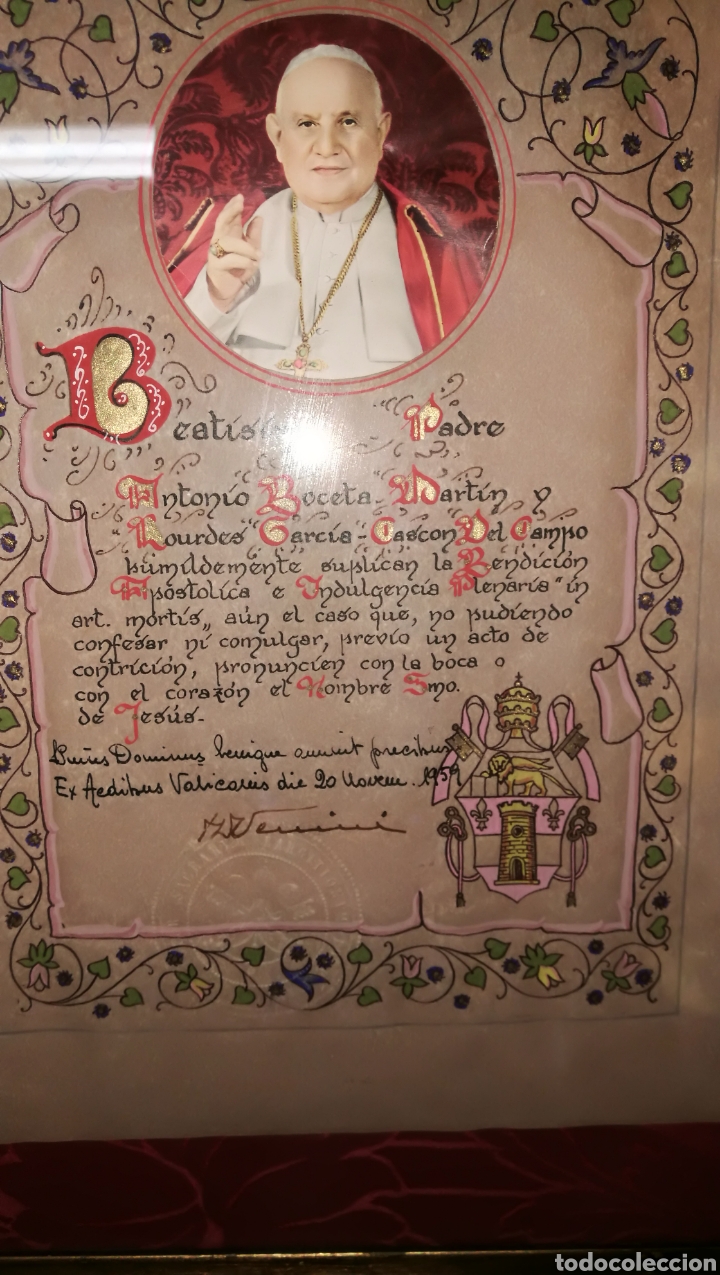 Padre
Antonio Boceta Martín y
Lourdes García-Cascon Del Campo
humildemente suplican la Bendición
Apostólica e Indulgencia Plenaria "in
art. mortis„ aún el caso que, no pudiendo
confesar ni comulgar, previo un acto de
contrición, pronuncien con la boca o
con el corazón el Nombre Smo.
de Jesús-
Dominus benigne annuit precibus
Ex Aedibus Vaticanis die 20 Novem. 1959
todocoleccion